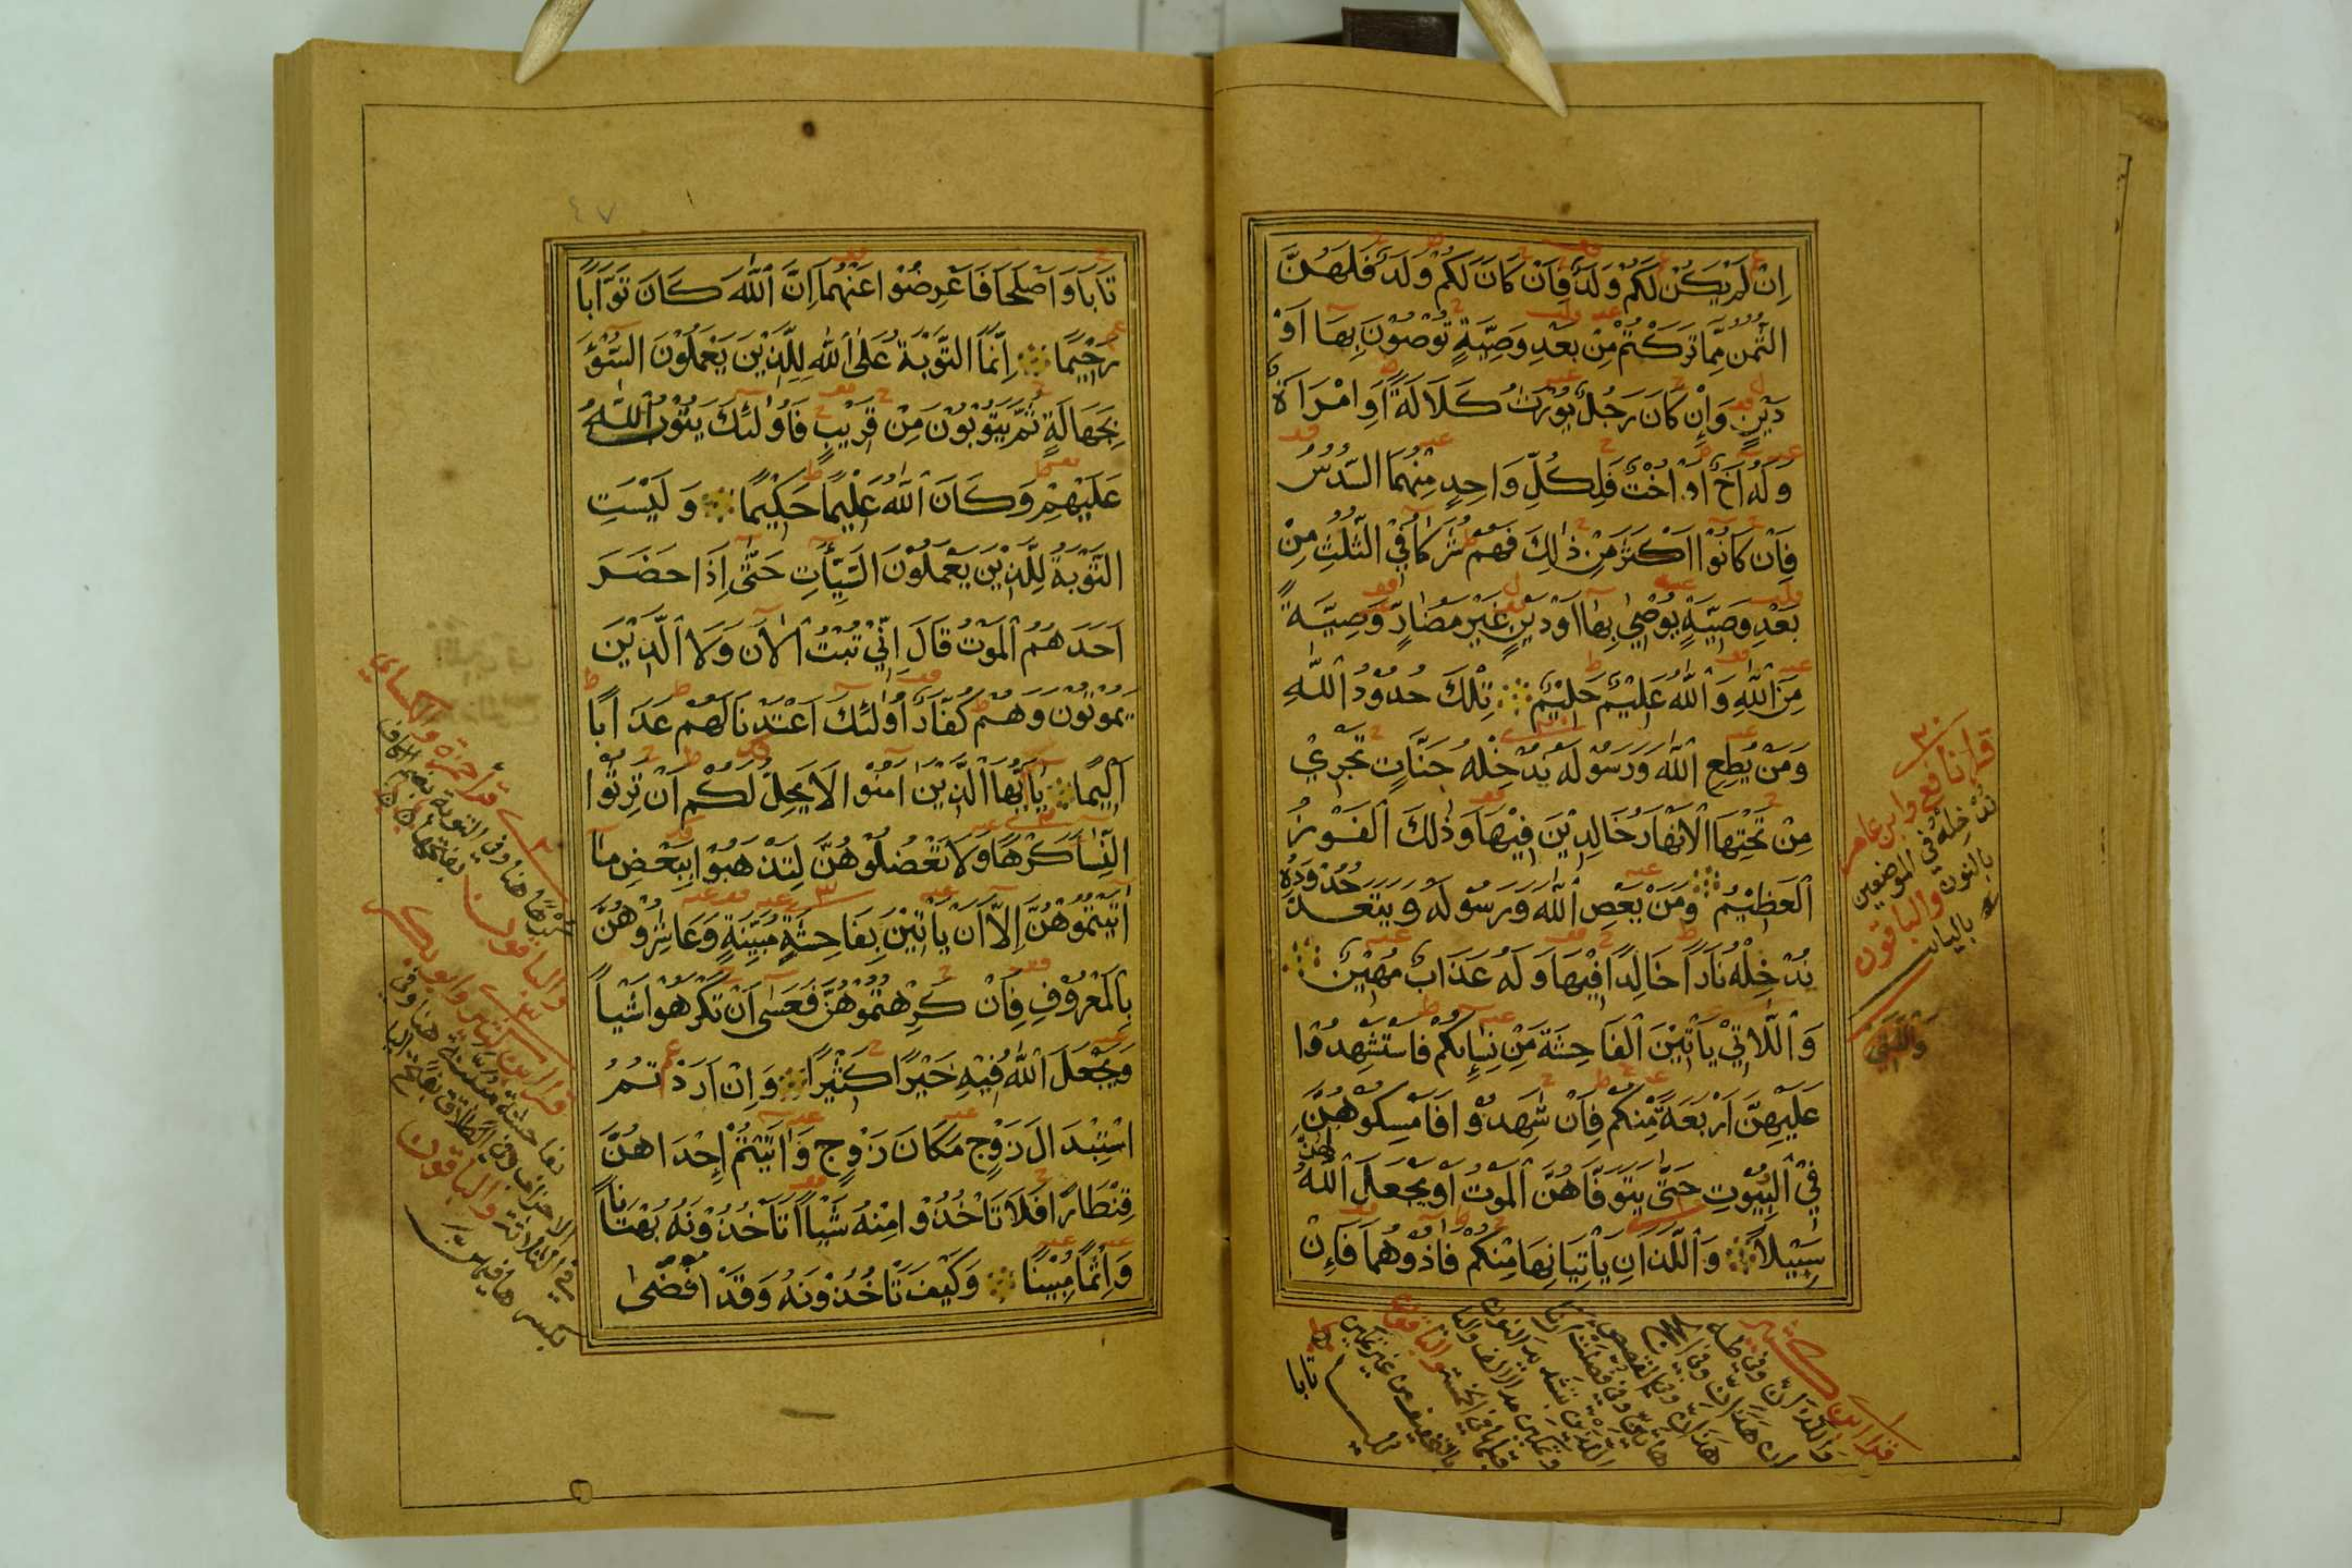 اِنْ لَمْ يَكُنْ لَكُمْ وَلَدٌ فَاِنْ كَانَ لَكُمْ وَلَدٌ فَلَهُنَّ
الثُّمُنُ مِمَّا تَرَكْتُمْ مِنْ بَعْدِ وَصِيَّةٍ تُوْصُوْنَ بِهَا اَوْ
دَيْنٍ وَاِنْ كَانَ رَجُلٌ يُوْرَثُ كَلَالَةً اَوِ امْرَاَةٌ
وَلَهُ اَخٌ اَوْ اُخْتٌ فَلِكُلِّ وَاحِدٍ مِنْهُمَا السُّدُسُ
فَاِنْ كَانُوْا اَكْثَرَ مِنْ ذٰلِكَ فَهُمْ شُرَكَآءُ فِي الثُّلُثِ مِنْ
بَعْدِ وَصِيَّةٍ يُوْصِي بِهَا اَوْ دَيْنٍ غَيْرَ مُضَارٍّ وَصِيَّةً
مِنَ اللّٰهِ وَاللّٰهُ عَلِيْمٌ حَلِيْمٌ تِلْكَ حُدُوْدُ اللّٰهِ
وَمَنْ يُطِعِ اللّٰهَ وَرَسُوْلَهُ يُدْخِلْهُ جَنَّاتٍ تَجْرِيْ
مِنْ تَحْتِهَا الْاَنْهَارُ خَالِدِيْنَ فِيْهَا وَذٰلِكَ الْفَوْزُ
الْعَظِيْمُ وَمَنْ يَعْصِ اللّٰهَ وَرَسُوْلَهُ وَيَتَعَدَّ حُدُوْدَهُ
يُدْخِلْهُ نَارًا خَالِدًا فِيْهَا وَلَهُ عَذَابٌ مُهِيْنٌ
وَاللَّاتِيْ يَاْتِيْنَ الْفَاحِشَةَ مِنْ نِسَآئِكُمْ فَاسْتَشْهِدُوْا
عَلَيْهِنَّ اَرْبَعَةً مِنْكُمْ فَاِنْ شَهِدُوْا فَاَمْسِكُوْهُنَّ
فِي الْبُيُوْتِ حَتّٰى يَتَوَفَّاهُنَّ الْمَوْتُ اَوْ يَجْعَلَ اللّٰهُ لَهُنَّ
سَبِيْلًا وَاللَّذَانِ يَاْتِيَانِهَا مِنْكُمْ فَاٰذُوْهُمَا فَاِنْ
قرا نافع وابن عامر
ندخله في الموضعين
بالنون والباقون
بالياء
قرا ابن كثير
تابا
تَابَا وَاَصْلَحَا فَاَعْرِضُوْا عَنْهُمَا اِنَّ اللّٰهَ كَانَ تَوَّابًا
رَحِيْمًا اِنَّمَا التَّوْبَةُ عَلَى اللّٰهِ لِلَّذِيْنَ يَعْمَلُوْنَ السُّوْٓءَ
بِجَهَالَةٍ ثُمَّ يَتُوْبُوْنَ مِنْ قَرِيْبٍ فَاُولٰئِكَ يَتُوْبُ اللّٰهُ
عَلَيْهِمْ وَكَانَ اللّٰهُ عَلِيْمًا حَكِيْمًا وَلَيْسَتِ
التَّوْبَةُ لِلَّذِيْنَ يَعْمَلُوْنَ السَّيِّئَاتِ حَتّٰى اِذَا حَضَرَ
اَحَدَهُمُ الْمَوْتُ قَالَ اِنِّيْ تُبْتُ الْاٰنَ وَلَا الَّذِيْنَ
يَمُوْتُوْنَ وَهُمْ كُفَّارٌ اُولٰئِكَ اَعْتَدْنَا لَهُمْ عَذَابًا
اَلِيْمًا يَا اَيُّهَا الَّذِيْنَ اٰمَنُوْا لَا يَحِلُّ لَكُمْ اَنْ تَرِثُوْا
النِّسَآءَ كَرْهًا وَلَا تَعْضُلُوْهُنَّ لِتَذْهَبُوْا بِبَعْضِ مَا
اٰتَيْتُمُوْهُنَّ اِلَّا اَنْ يَاْتِيْنَ بِفَاحِشَةٍ مُبَيِّنَةٍ وَعَاشِرُوْهُنَّ
بِالْمَعْرُوْفِ فَاِنْ كَرِهْتُمُوْهُنَّ فَعَسٰى اَنْ تَكْرَهُوْا شَيْئًا
وَيَجْعَلَ اللّٰهُ فِيْهِ خَيْرًا كَثِيْرًا وَاِنْ اَرَدْتُمُ
اسْتِبْدَالَ زَوْجٍ مَكَانَ زَوْجٍ وَاٰتَيْتُمْ اِحْدَاهُنَّ
قِنْطَارًا فَلَا تَاْخُذُوْا مِنْهُ شَيْئًا اَتَاْخُذُوْنَهُ بُهْتَانًا
وَاِثْمًا مُبِيْنًا وَكَيْفَ تَاْخُذُوْنَهُ وَقَدْ اَفْضٰى
قرا حمزة والكسائي
كرها هنا وفي التوبة بضم الكاف
والباقون بفتحها
قرا ابن كثير وابو بكر
والباقون
٤٧